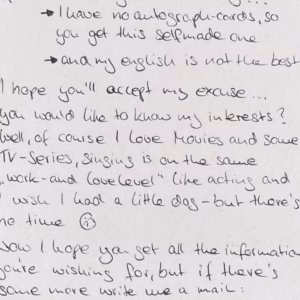 → I have no autograph-cards, so
you get this selfmade one
→ and my english is not the best
I hope you'll accept my excuse...
you would like to know my interests?
Well, of course I love Movies and some
TV-Series, singing is on the same
„work-and lovelevel" like acting and
I wish I had a little dog - but there's
no time ☹
Now I hope you get all the informatio
you're wishing for, but if there's
some more write me a mail: